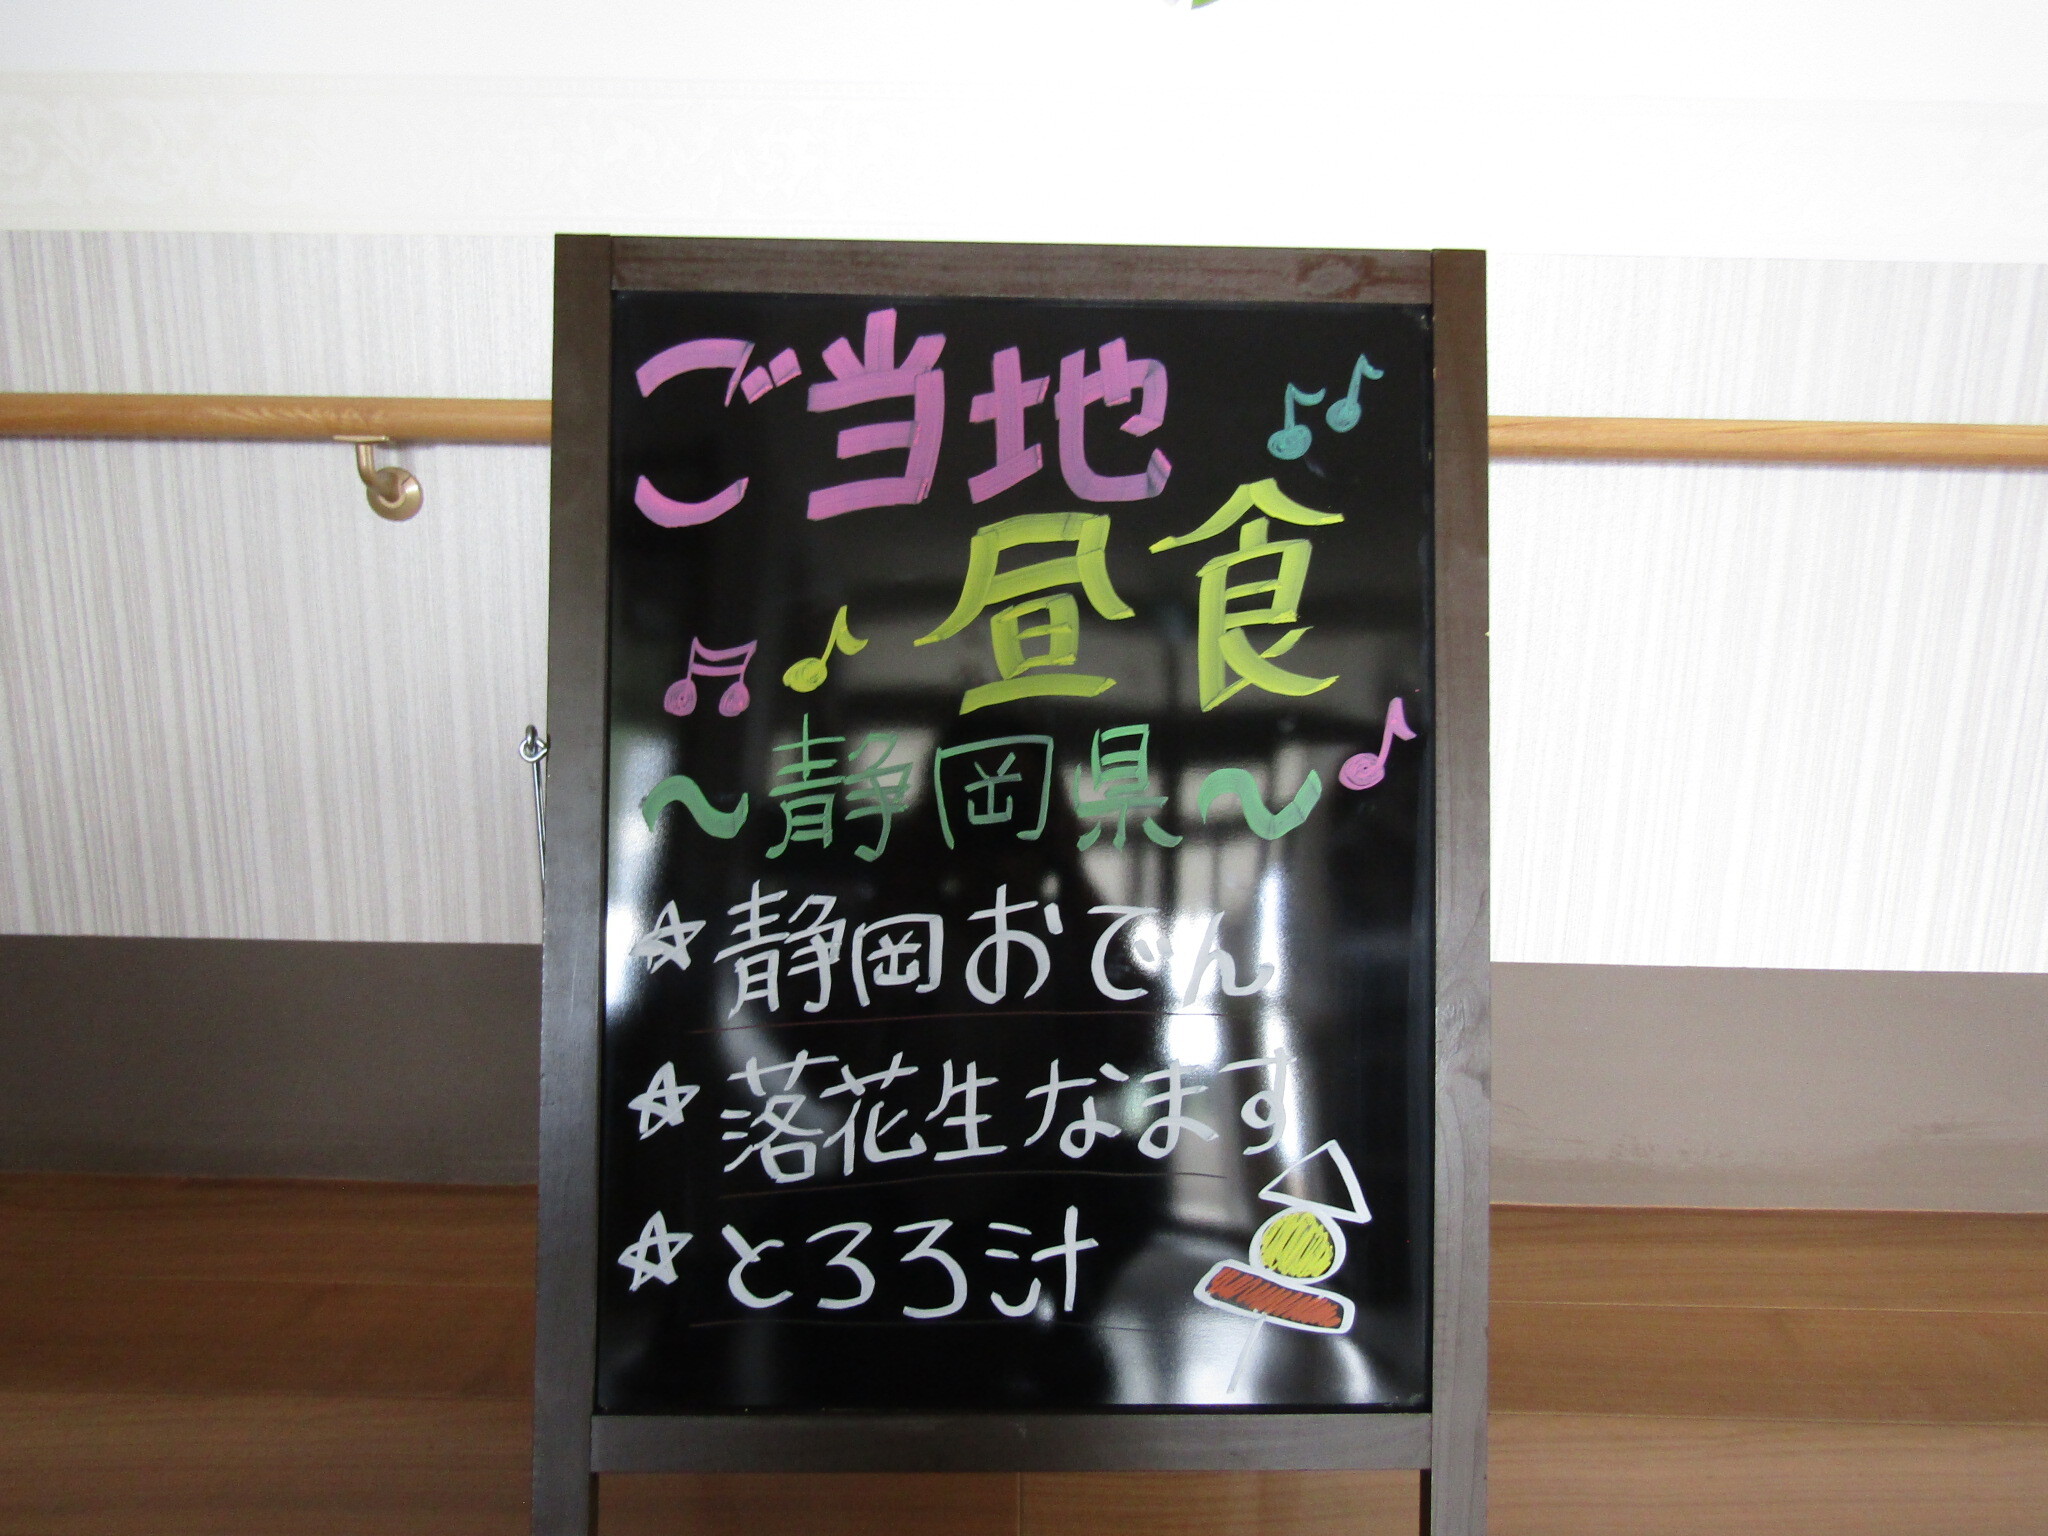 ご当地
昼食
～静岡県～
☆静岡おでん
☆落花生なます
☆とろろ汁